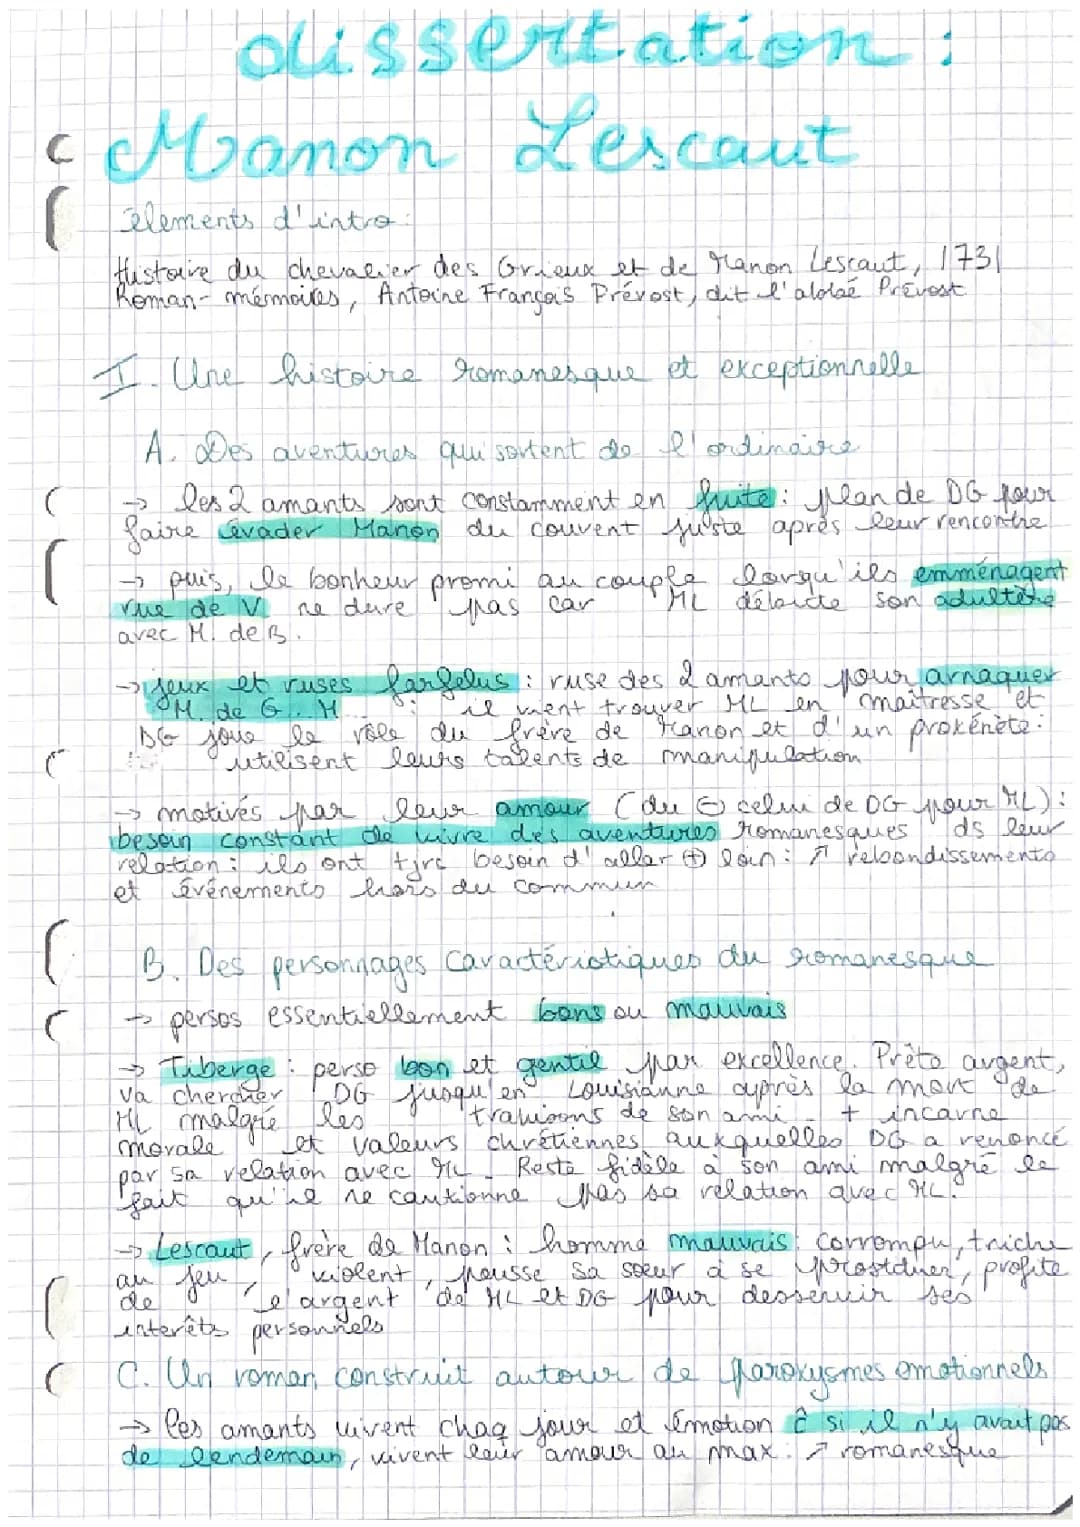 dissertation :
Manon Lescaut
élements d'intro :
Histoire du chevalier des Grieux et de Manon Lescaut, 1731
Roman-mémoires, Antoine François Prévost, dit l'abbé Prévost
I. Une histoire romanesque et exceptionnelle
A. Des aventures qui sortent de l'ordinaire
→ les 2 amants sont constamment en fuite : plan de DG pour
faire évader Manon du couvent juste après leur rencontre
→ puis, le bonheur promi au couple lorsqu'ils emménagent
rue de V ne dure pas car ML débute son adultère
avec M. de B.
→ jeux et ruses farfelus : ruse des 2 amants pour arnaquer
M. de G.. M... : il vient trouver ML en maîtresse et
DG joue le rôle du frère de Manon et d'un proxénète :
utilisent leurs talents de manipulation
→ motivés par leur amour (du ⊖ celui de DG pour ML) :
besoin constant de vivre des aventures romanesques ds leur
relation : ils ont tjrs besoin d'aller ⊕ loin : ↗ rebondissements
et événements hors du commun
B. Des personnages caractéristiques du romanesque
→ persos essentiellement bons ou mauvais
→ Tiberge : perso bon et gentil par excellence. Prête argent,
va chercher DG jusqu'en Louisianne après la mort de
ML malgré les trahisons de son ami. + incarne
morale et valeurs chrétiennes auxquelles DG a renoncé
par sa relation avec ML. Reste fidèle à son ami malgré le
fait qu'il ne cautionne pas sa relation avec ML.
→ Lescaut, frère de Manon : homme mauvais : corrompu, triche
au jeu, violent, pousse sa soeur à se prostituer, profite
de l'argent de ML et DG pour desservir ses
interêts personnels
C. Un roman construit autour de paroxysmes émotionnels
→ les amants vivent chaq jour et émotion ĉ si il n'y avait pas
de lendemain, vivent leur amour au max : ↗ romanesque